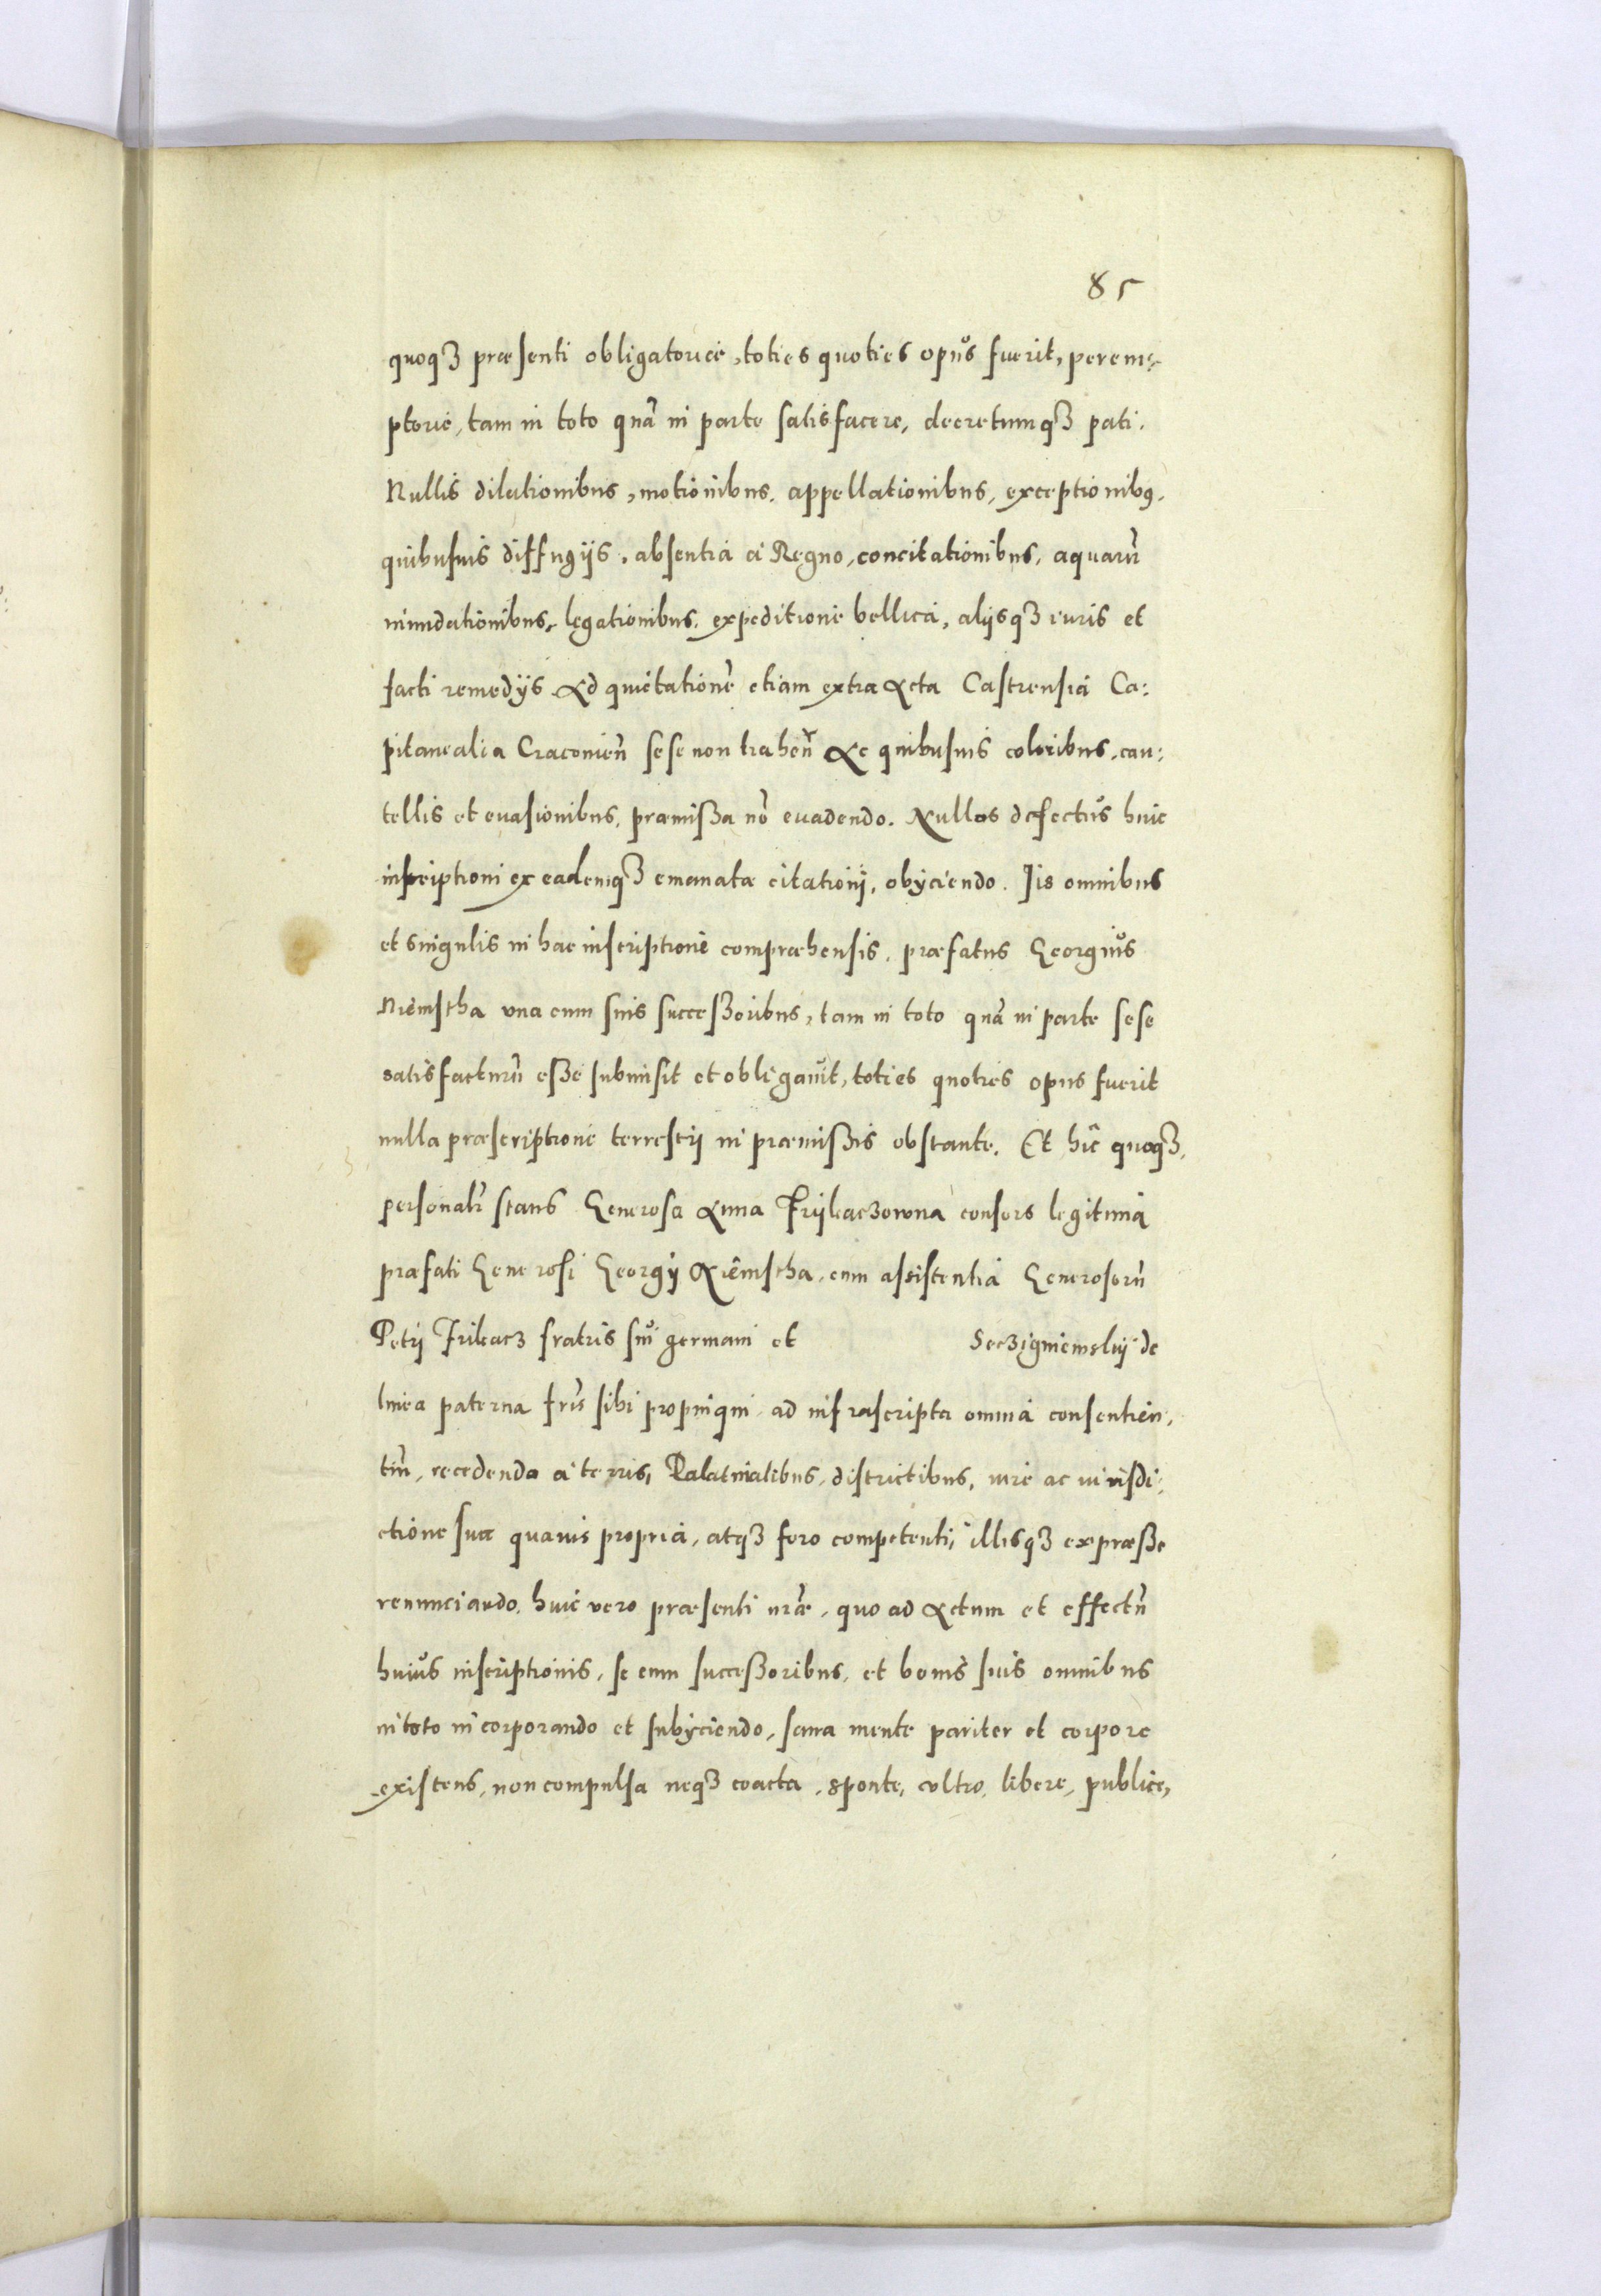 85
quoqꝫ præsenti obligatorie, toties quoties opus fuerit, perem-
ptorie, tam in toto quā in parte satisfacere, decretumqꝫ pati.
Nullis dilationibus, motionibus, appellationibus, exceptionibꝰ,
quibusuis diffugijs, absentia á Regno, concitationibus, aquarū
inundationibus, legationibus, expeditione bellica, alijsqꝫ iuris et
facti remedijs Ad quietationē etiam extra Acta Castrensia Ca:
pitanealia Cracouien̄ sese non trahen̄ Ac quibusuis coloribus, cau:
tellis et euasionibus, præmissa nō euadendo. Nullos defectus huic
inscriptioni ex eademqꝫ emanatæ citationij, obijciendo. Iis omnibus
et singulis in hac inscriptione compræhensis, præfatus Georgius
Niemstha vna cum suis successoribus, tam in toto quā in parte sese
satisfacturū esse submisit et obligauit, toties quoties opus fuerit
nulla præscriptione terrestrij in præmissis obstante. Et hīc quoqꝫ,
personalr̄ stans Generosa Anna Frijkaczowna consors legitima
præfati Generosi Georgij Niemstha, cum assistentia Generosorū
Petrij Frikacz fratris sui germani et Seczigniewskij de
linea paterna frīs sibi propinqui, ad infrascripta omnia consentien,
tiū, recedendo á terris, Palatinatibus, districtibus, iure ac iurisdi:
ctione sua quauis propria, atqꝫ foro competenti, illisqꝫ expræsse
renunciando, huic vero præsenti nr̄æ, quo ad Actum et effectū
huius inscriptionis, se cum successoribus, et bonis suis omnibus
in toto incorporando et subijciendo, sana mente pariter et corpore
existens, non compulsa neqꝫ coacta, sponte, vltro, libere, publice,